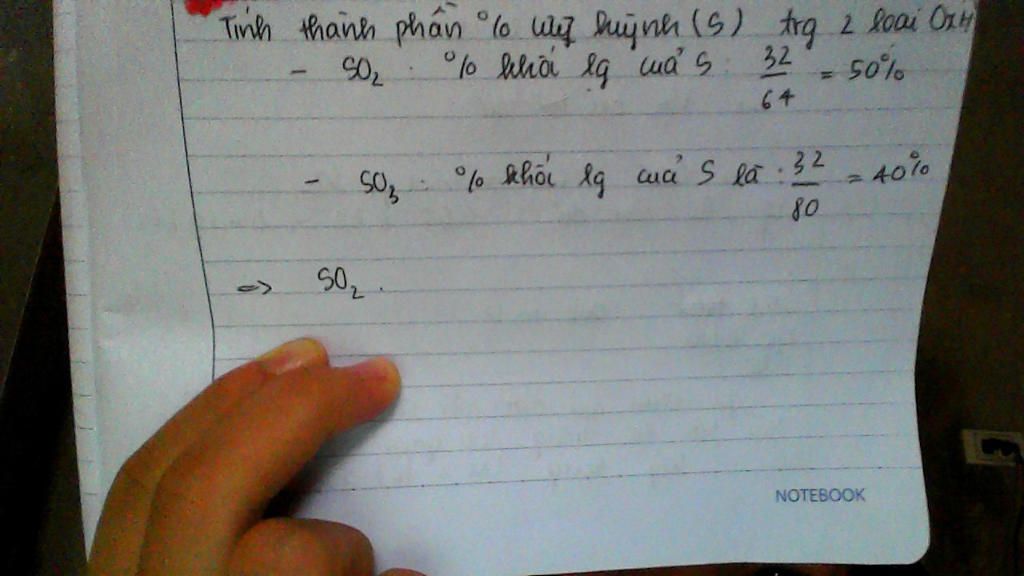 Tính thành phần % lưu huỳnh (S) trg 2 loại Oxit
- SO₂ : % khối lg của S : 32/64 = 50%
- SO₃ : % khối lg của S là : 32/80 = 40%
=> SO₂ .
NOTEBOOK